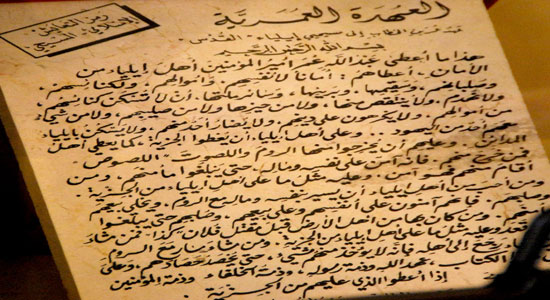 العهدة العمرية
رمز التعايش
الإسلامي المسيحي
عمر بن الخطاب إلى مسيحيي إيلياء "القدس"
بسم الله الرحمن الرحيم
هذا ما أعطى عبد الله عمر أمير المؤمنين أهل إيلياء من
الأمان، أعطاهم: أمانا لأنفسهم وأموالهم، ولكنائسهم
وصلبانهم، وسقيمها، وبريئها، وسائر ملتها، أن لا تسكن كنائسهم
ولا تهدم، ولا ينتقص منها، ولا من حيزها ولا من صليبهم، ولا من شيء
من أموالهم، ولا يكرهون على دينهم، ولا يضار أحد منهم، ولا يسكن بإيلياء
معهم أحد من اليهود. وعلى أهل إيلياء، أن يعطوا الجزية، كما يعطي أهل
المدائن، وعليهم أن يخرجوا منها الروم واللصوت "اللصوص".
فمن خرج منهم، فإنه آمن على نفسه وماله، حتى يبلغوا مأمنهم، ومن
أقام منهم فهو آمن، وعليه مثل ما على أهل إيلياء من الجزية.
ومن أحب من أهل إيلياء، أن يسير بنفسه، وماله مع الروم، ويخلي بيعهم
وصلبهم، فإنهم آمنون على أنفسهم وعلى بيعهم، وصلبهم حتى يبلغوا
ومن كان بها من أهل الأرض قبل مقتل فلان بن كذا، فمن شاء
قعد وعليه مثل ما على أهل إيلياء من الجزية، ومن شاء سار مع الروم
رجع إلى أهله فإنه لا يؤخذ منهم شيء، حتى يحصد حصادهم، وعلى
الكتاب، عهد الله وذمة رسوله، وذمة الخلفاء وذمة المؤمنين
إذا أعطوا الذي عليهم من الجزية.